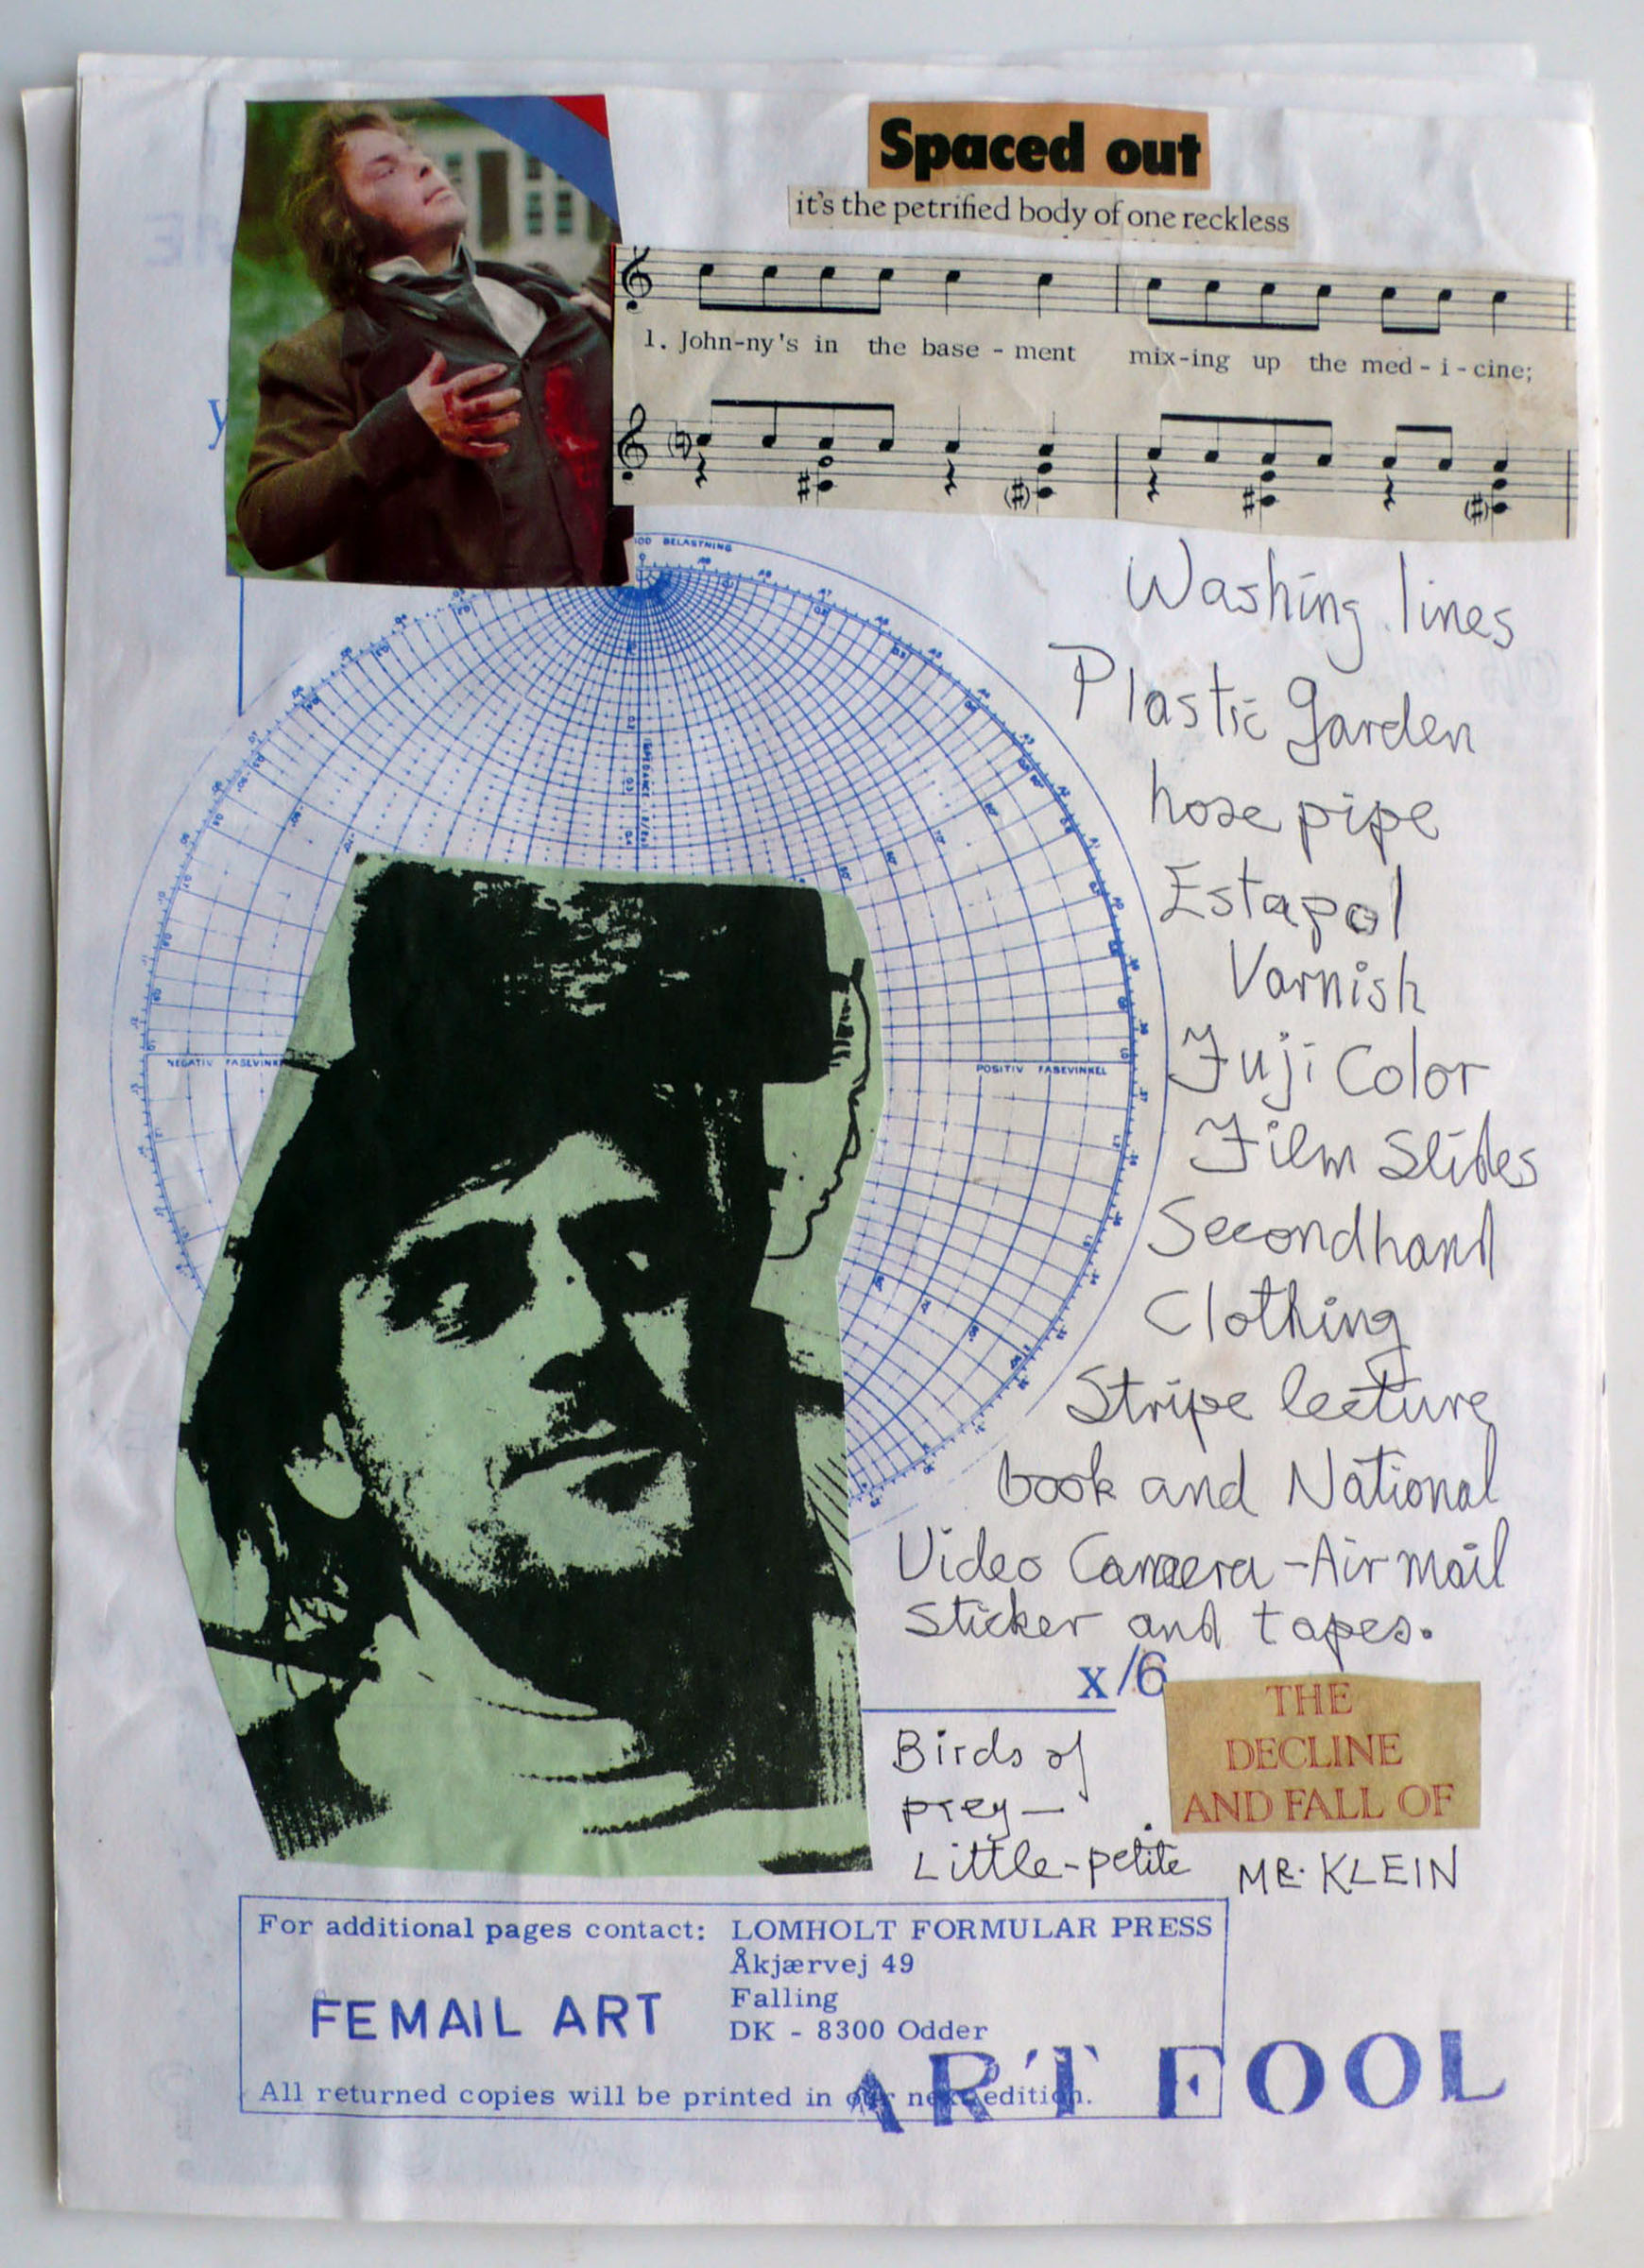 Spaced out
it's the petrified body of one reckless
1. John-ny's in the base - ment mix-ing up the med - i - cine;
y
BELASTNING
Washing lines
Plastic garden
hose pipe
Estapol
Varnish
Fuji Color
Film Slides
Secondhand
Clothing
Stripe lecture
book and National
Video Camera - Air mail
Sticker and tapes.
IMPEDANCE
NEGATIV FASEVINKEL
POSITIV FASEVINKEL
x/6
THE
DECLINE
AND FALL OF
MR. KLEIN
Birds of
prey —
Little-petite
For additional pages contact: LOMHOLT FORMULAR PRESS
Åkjærvej 49
Falling
DK - 8300 Odder
FEMAIL ART
All returned copies will be printed in our next edition.
ART FOOL